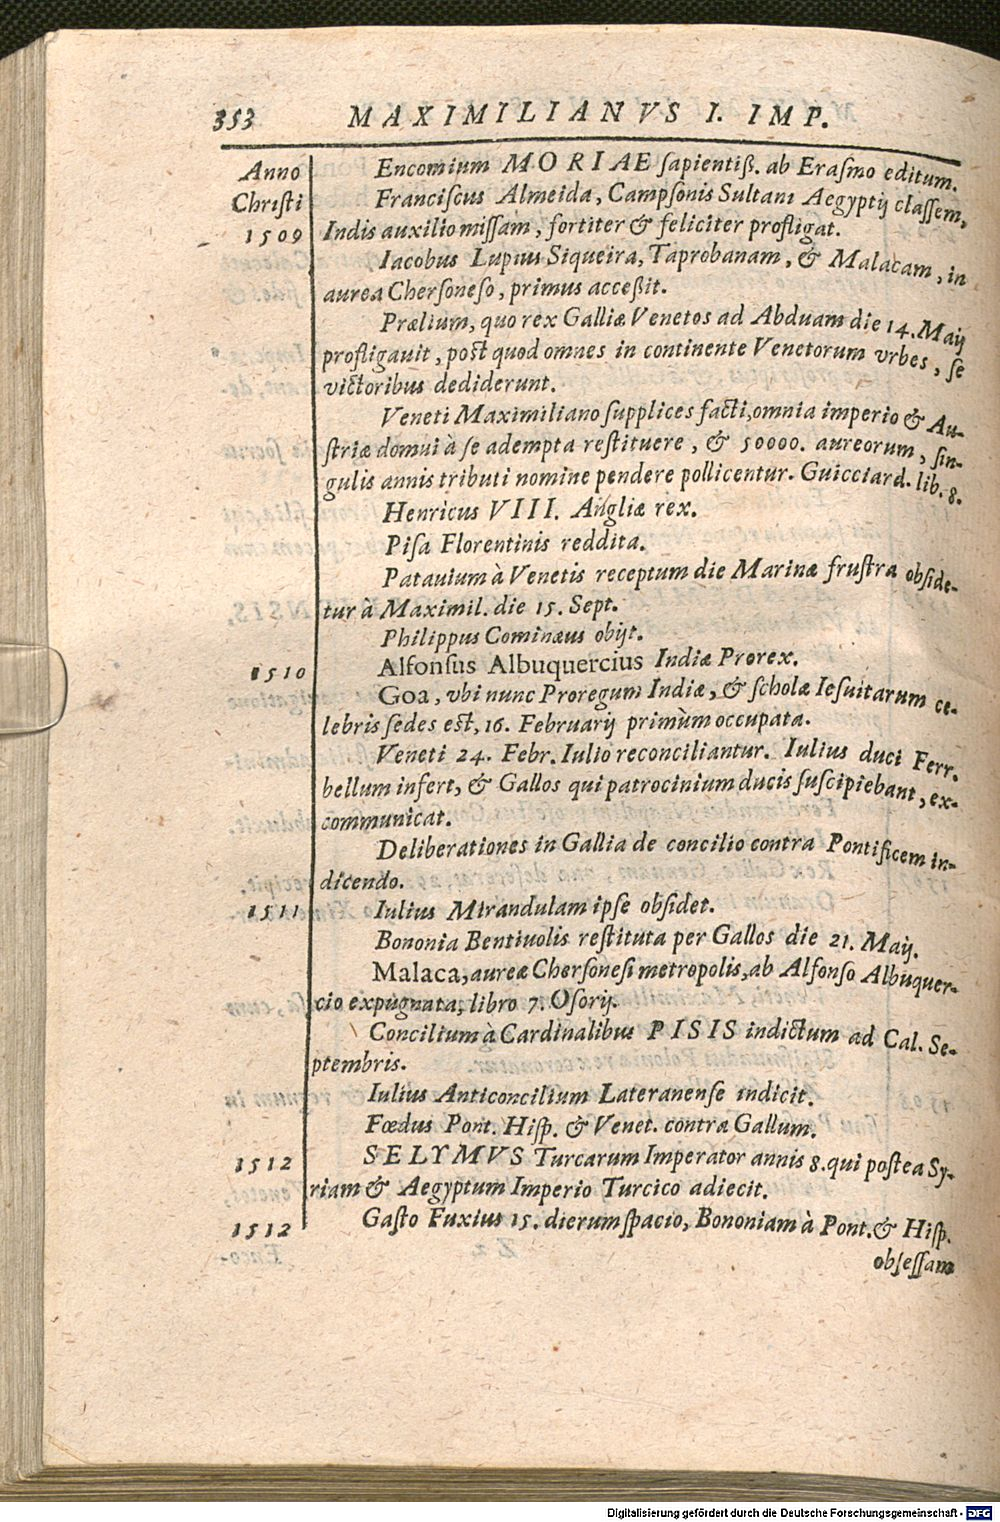 353 MAXIMILIANVS I. IMP.
Anno Encomium MORIAE ſapientiß. ab Eraſmo editum.
Chriſti Franciſcus Almeida, Campſonis Sultani Aegyptij claſſem,
1509 Indis auxilio miſſam, fortiter & feliciter profligat.
Iacobus Lupius Siqueira, Taprobanam, & Malacam, in
aurea Cherſoneſo, primus acceßit.
Prælium, quo rex Galliæ Venetos ad Abduam die 14. Maij
profligauit, poſt quod omnes in continente Venetorum vrbes, ſe
victoribus dediderunt.
Veneti Maximiliano ſupplices facti, omnia imperio & Au-
ſtriæ domui à ſe adempta reſtituere, & 50000. aureorum, ſin-
gulis annis tributi nomine pendere pollicentur. Guicciard. lib. 8.
Henricus VIII. Angliæ rex.
Piſa Florentinis reddita.
Patauium à Venetis receptum die Marinæ fruſtra obſide-
tur à Maximil. die 15. Sept.
Philippus Cominæus obijt.
1510 Alfonſus Albuquercius Indiæ Prorex.
Goa, vbi nunc Proregum Indiæ, & ſcholæ Ieſuitarum ce-
lebris ſedes eſt, 16. Februarij primùm occupata.
Veneti 24. Febr. Iulio reconciliantur. Iulius duci Ferr.
bellum infert, & Gallos qui patrocinium ducis ſuſcipiebant, ex-
communicat.
Deliberationes in Gallia de concilio contra Pontificem in-
dicendo.
1511 Iulius Mirandulam ipſe obſidet.
Bononia Bentiuolis reſtituta per Gallos die 21. Maij.
Malaca, aureæ Cherſoneſi metropolis, ab Alfonſo Albuquer-
cio expugnata, libro 7. Oſorij.
Concilium à Cardinalibus PISIS indictum ad Cal. Se-
ptembris.
Iulius Anticoncilium Lateranenſe indicit.
Fœdus Pont. Hiſp. & Venet. contra Gallum.
1512 SELYMVS Turcarum Imperator annis 8. qui poſtea Sy-
riam & Aegyptum Imperio Turcico adiecit.
1512 Gaſto Fuxius 15. dierum ſpacio, Bononiam à Pont. & Hiſp.
obſeſſam
Digitalisierung gefördert durch die Deutsche Forschungsgemeinschaft - DFG